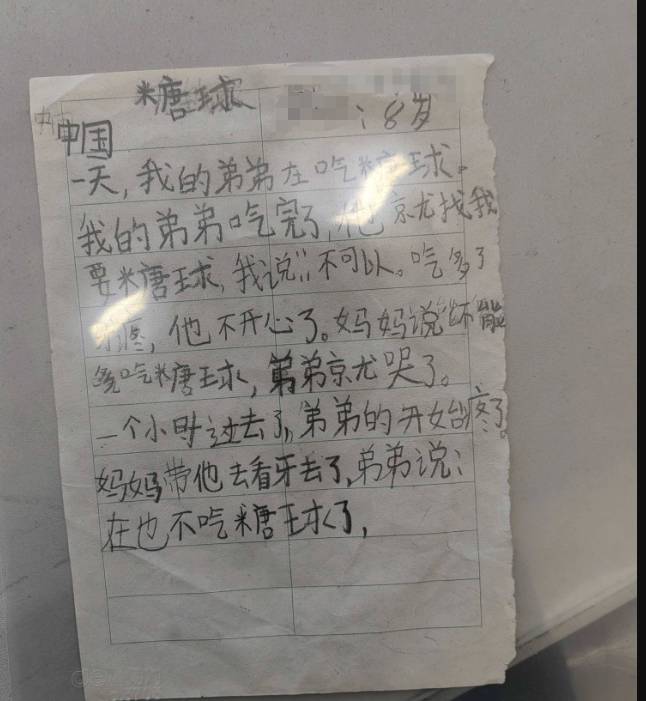 糖球
：8岁
中国
一天，我的弟弟在吃糖球。
我的弟弟吃完了，他就找我
要糖球，我说：不可以。吃多了
牙疼，他不开心了。妈妈说：不能
多吃糖球，弟弟就哭了。
一个小时过去了，弟弟的开始疼了。
妈妈带他去看牙去了，弟弟说：
在也不吃糖球了，